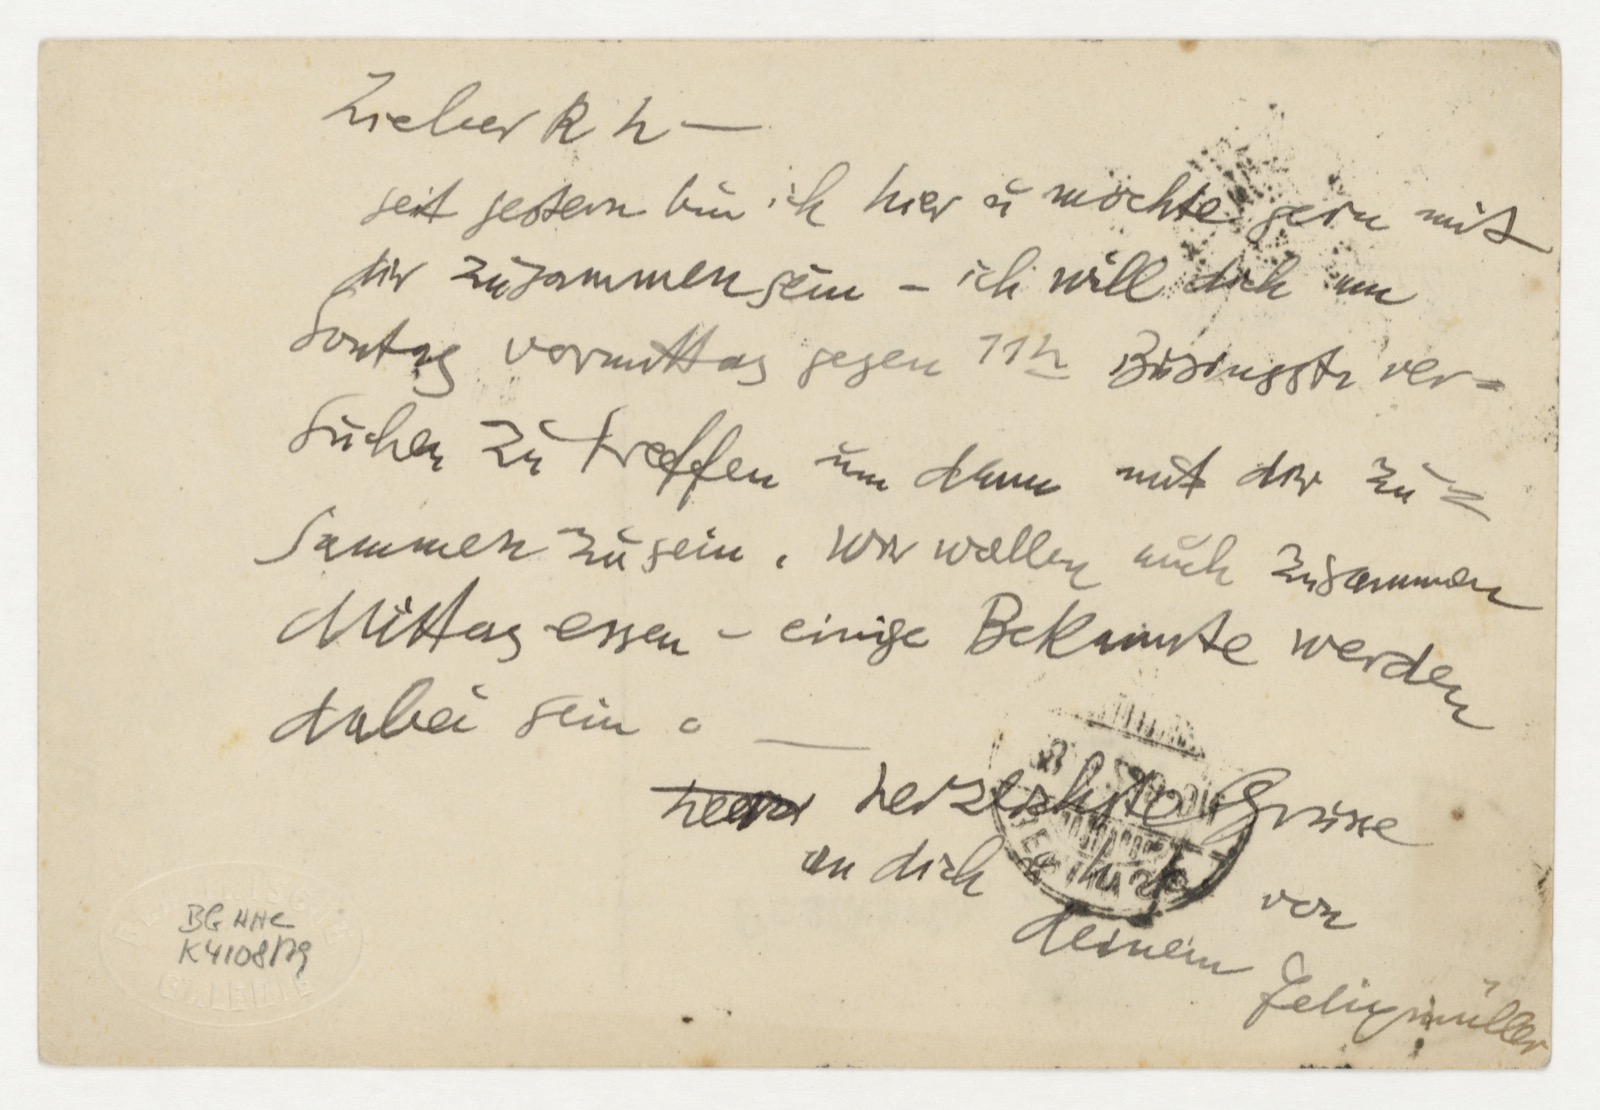 Lieber R h —
seit gestern bin ich hier u möchte gern mit
dir zusammensein – ich will dich am
Sontag vormittag gegen 11h Büsingstr ver=
suchen zu treffen um dann mit dir zu=
sammen zu sein. Wir wollen auch zusammen
Mittag essen – einige Bekannte werden
dabei sein. —
herzlichste Grüsse
an dich von
deinem Felixmüller
BG HHC
K4108/79
GALERIE